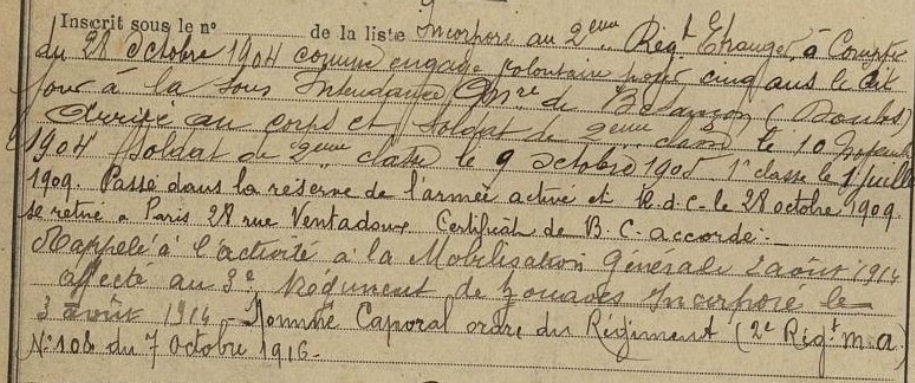 Inscrit sous le n° de la liste Incorporé au 2eme Regt Etranger, à Compter
du 28 Octobre 1904 comme engagé volontaire pour cinq ans le dit
jour à la Sous Intendance Mre de Besançon (Doubs)
Arrivé au corps et Soldat de 2eme classe le 10 Novembre
1904 Soldat de 2eme classe le 9 octobre 1905 1e classe le 1 juillet
1909. Passé dans la réserve de l'armée active et R.d.c. le 28 octobre 1909.
se retire a Paris 28 rue Ventadour Certificat de B. C. accordé :-
Rappelé à l'activité à la Mobilisation Générale 2 août 1914
affecté au 3e Régiment de Zouaves Incorporé le
3 août 1914 - Nommé Caporal ordre du Régiment (2e Regt m.a)
N° 108 du 7 Octobre 1916-